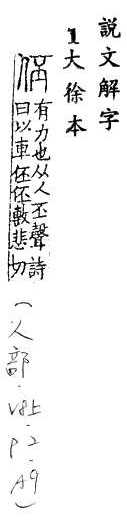 説文解字
1大徐本
伾
有力也从人丕聲詩
曰以車伾伾敷悲切
(人部.V8上.P2.A9)